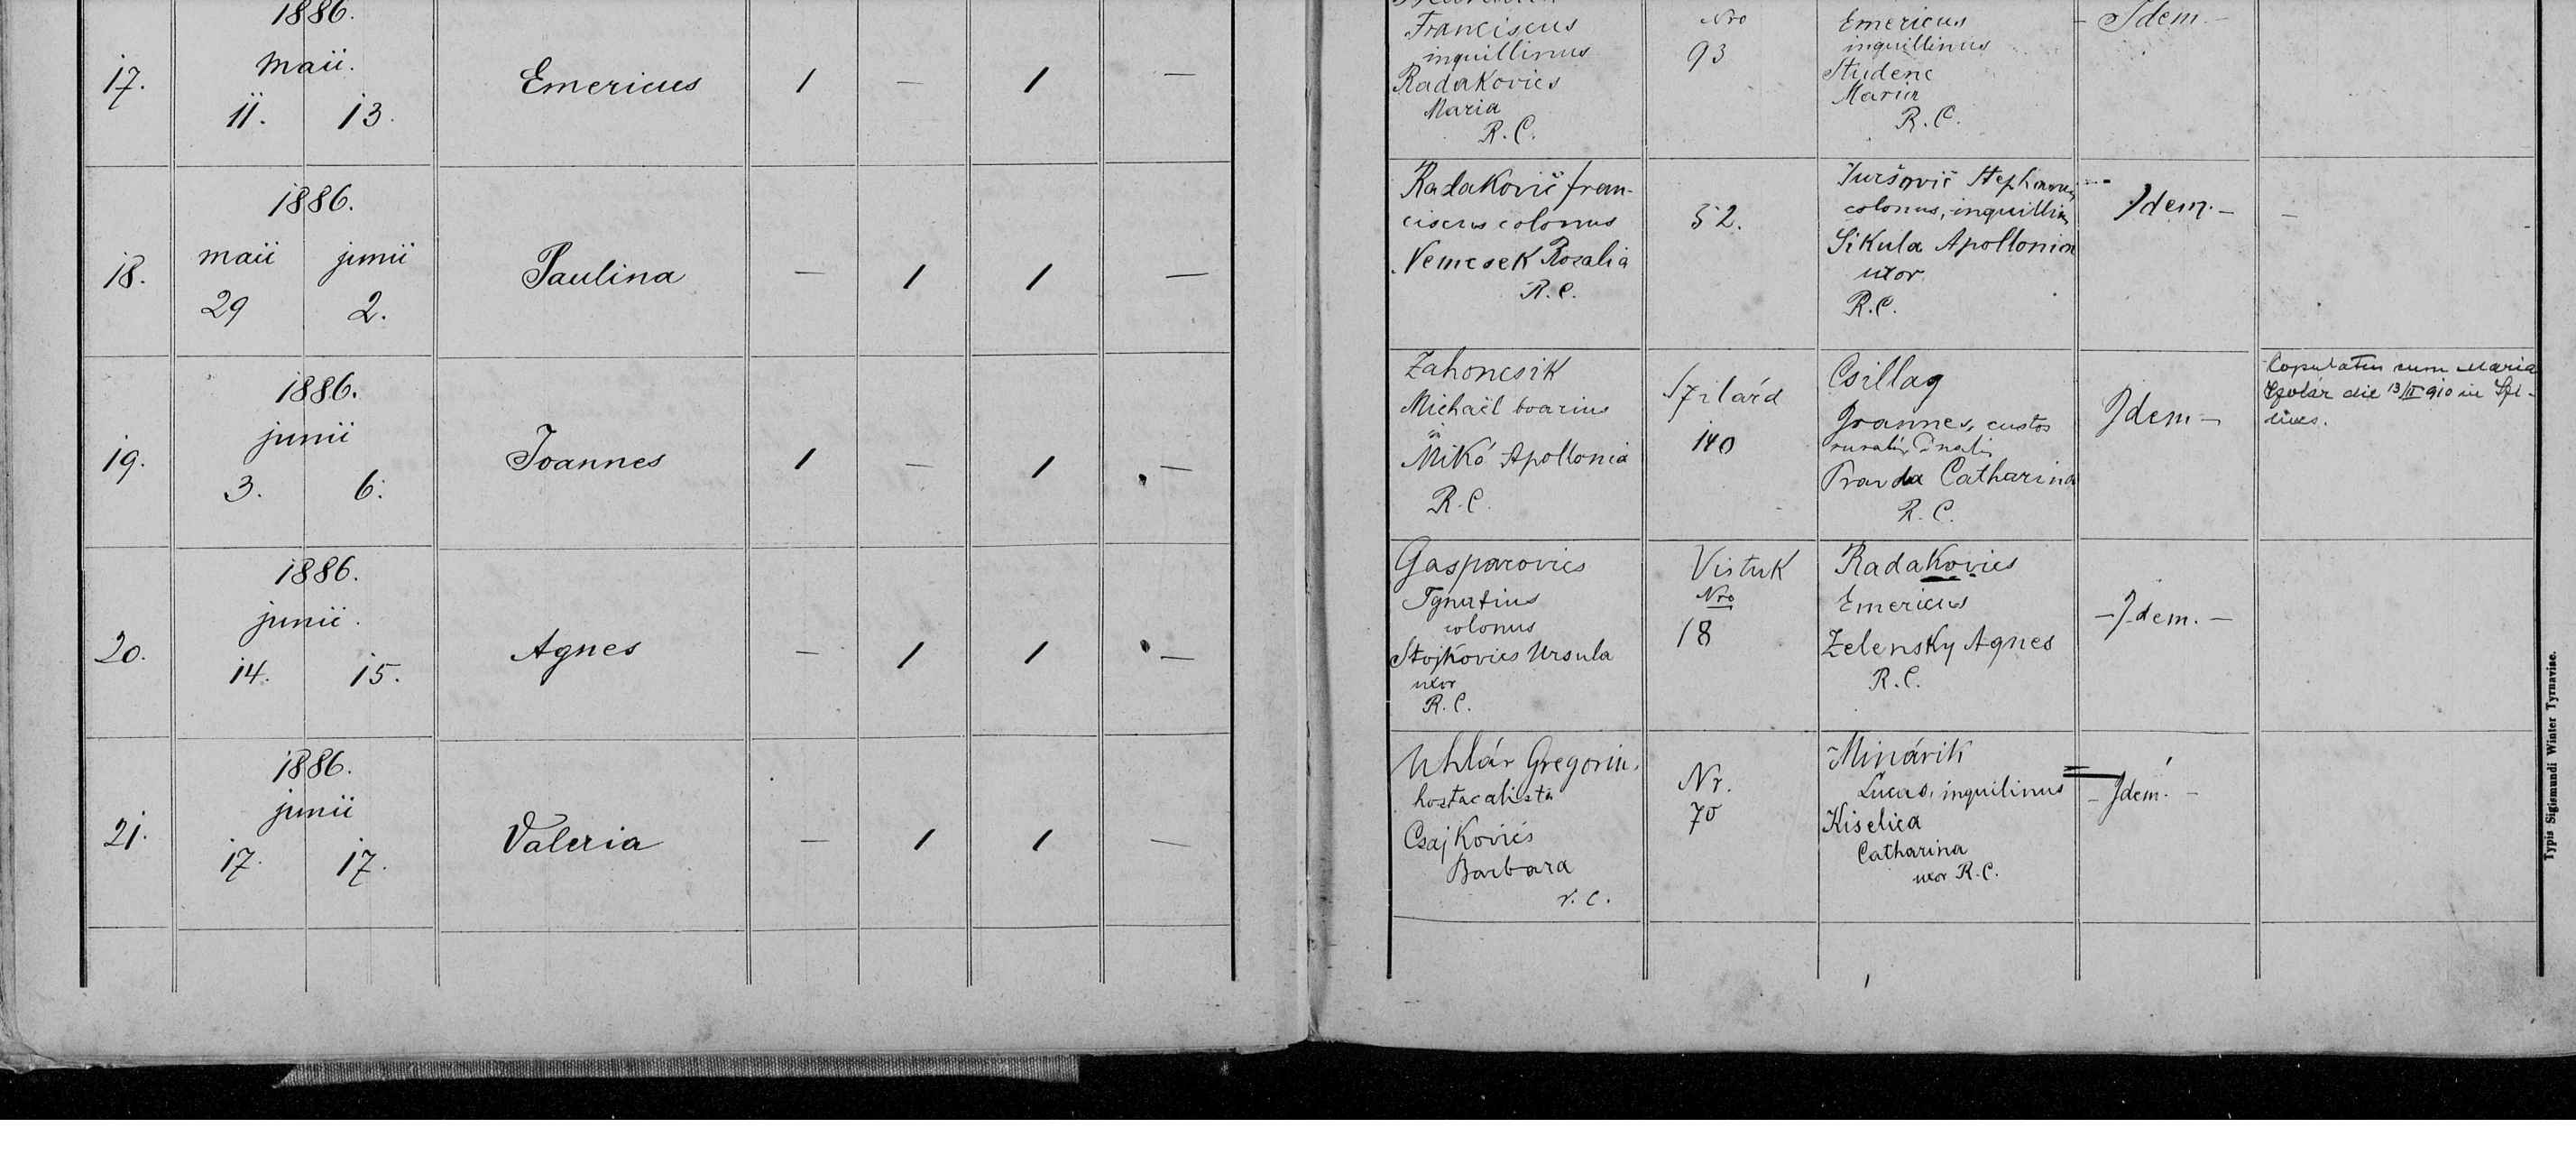 1886.
17.
Maii.
11. 13.
Emericus
1 — 1 —
Franciscus
inquillinus
Radakovics
Maria
R.C.
Nro
93
Emericus
inquillinus
Studenc
Maria
R.C.
- Idem. -
1886.
18.
maii junii
29 2.
Paulina
— 1 1 —
Radakovič fran-
ciscus colonus
Nemcsek Rozalia
R.C.
52.
Juršovič Stephanus
colonus, inquillin
Sikula Apollonia
uxor
R.C.
Idem. -
-
1886.
19.
junii
3. 6.
Joannes
1 — 1 —
Zahoncsik
Michaël boarius
Mikó Apollonia
R.C.
Szilárd
140
Csillag
Joannes, custos
ruralis
Pravda Catharina
R.C.
Idem -
Copulatus cum Maria
die 13/II 910 in
1886.
20.
junii.
14. 15.
Agnes
— 1 1 —
Gasparovics
Ignatius
colonus
Stojkovics Ursula
uxor
R.C.
Vistuk
Nro
18
Radakovics
Emericus
Zelensky Agnes
R.C.
- Idem. -
1886.
21.
junii
17. 17.
Valeria
— 1 1 —
Uhlár Gregoriu.
hostacalista
Csajkovics
Barbara
r.c.
Nr.
70
Minárik
Lucas, inquilinus
Kiselica
Catharina
uxor R.C.
- Idem. -
Typis Sigismundi Winter Tyrnaviae.